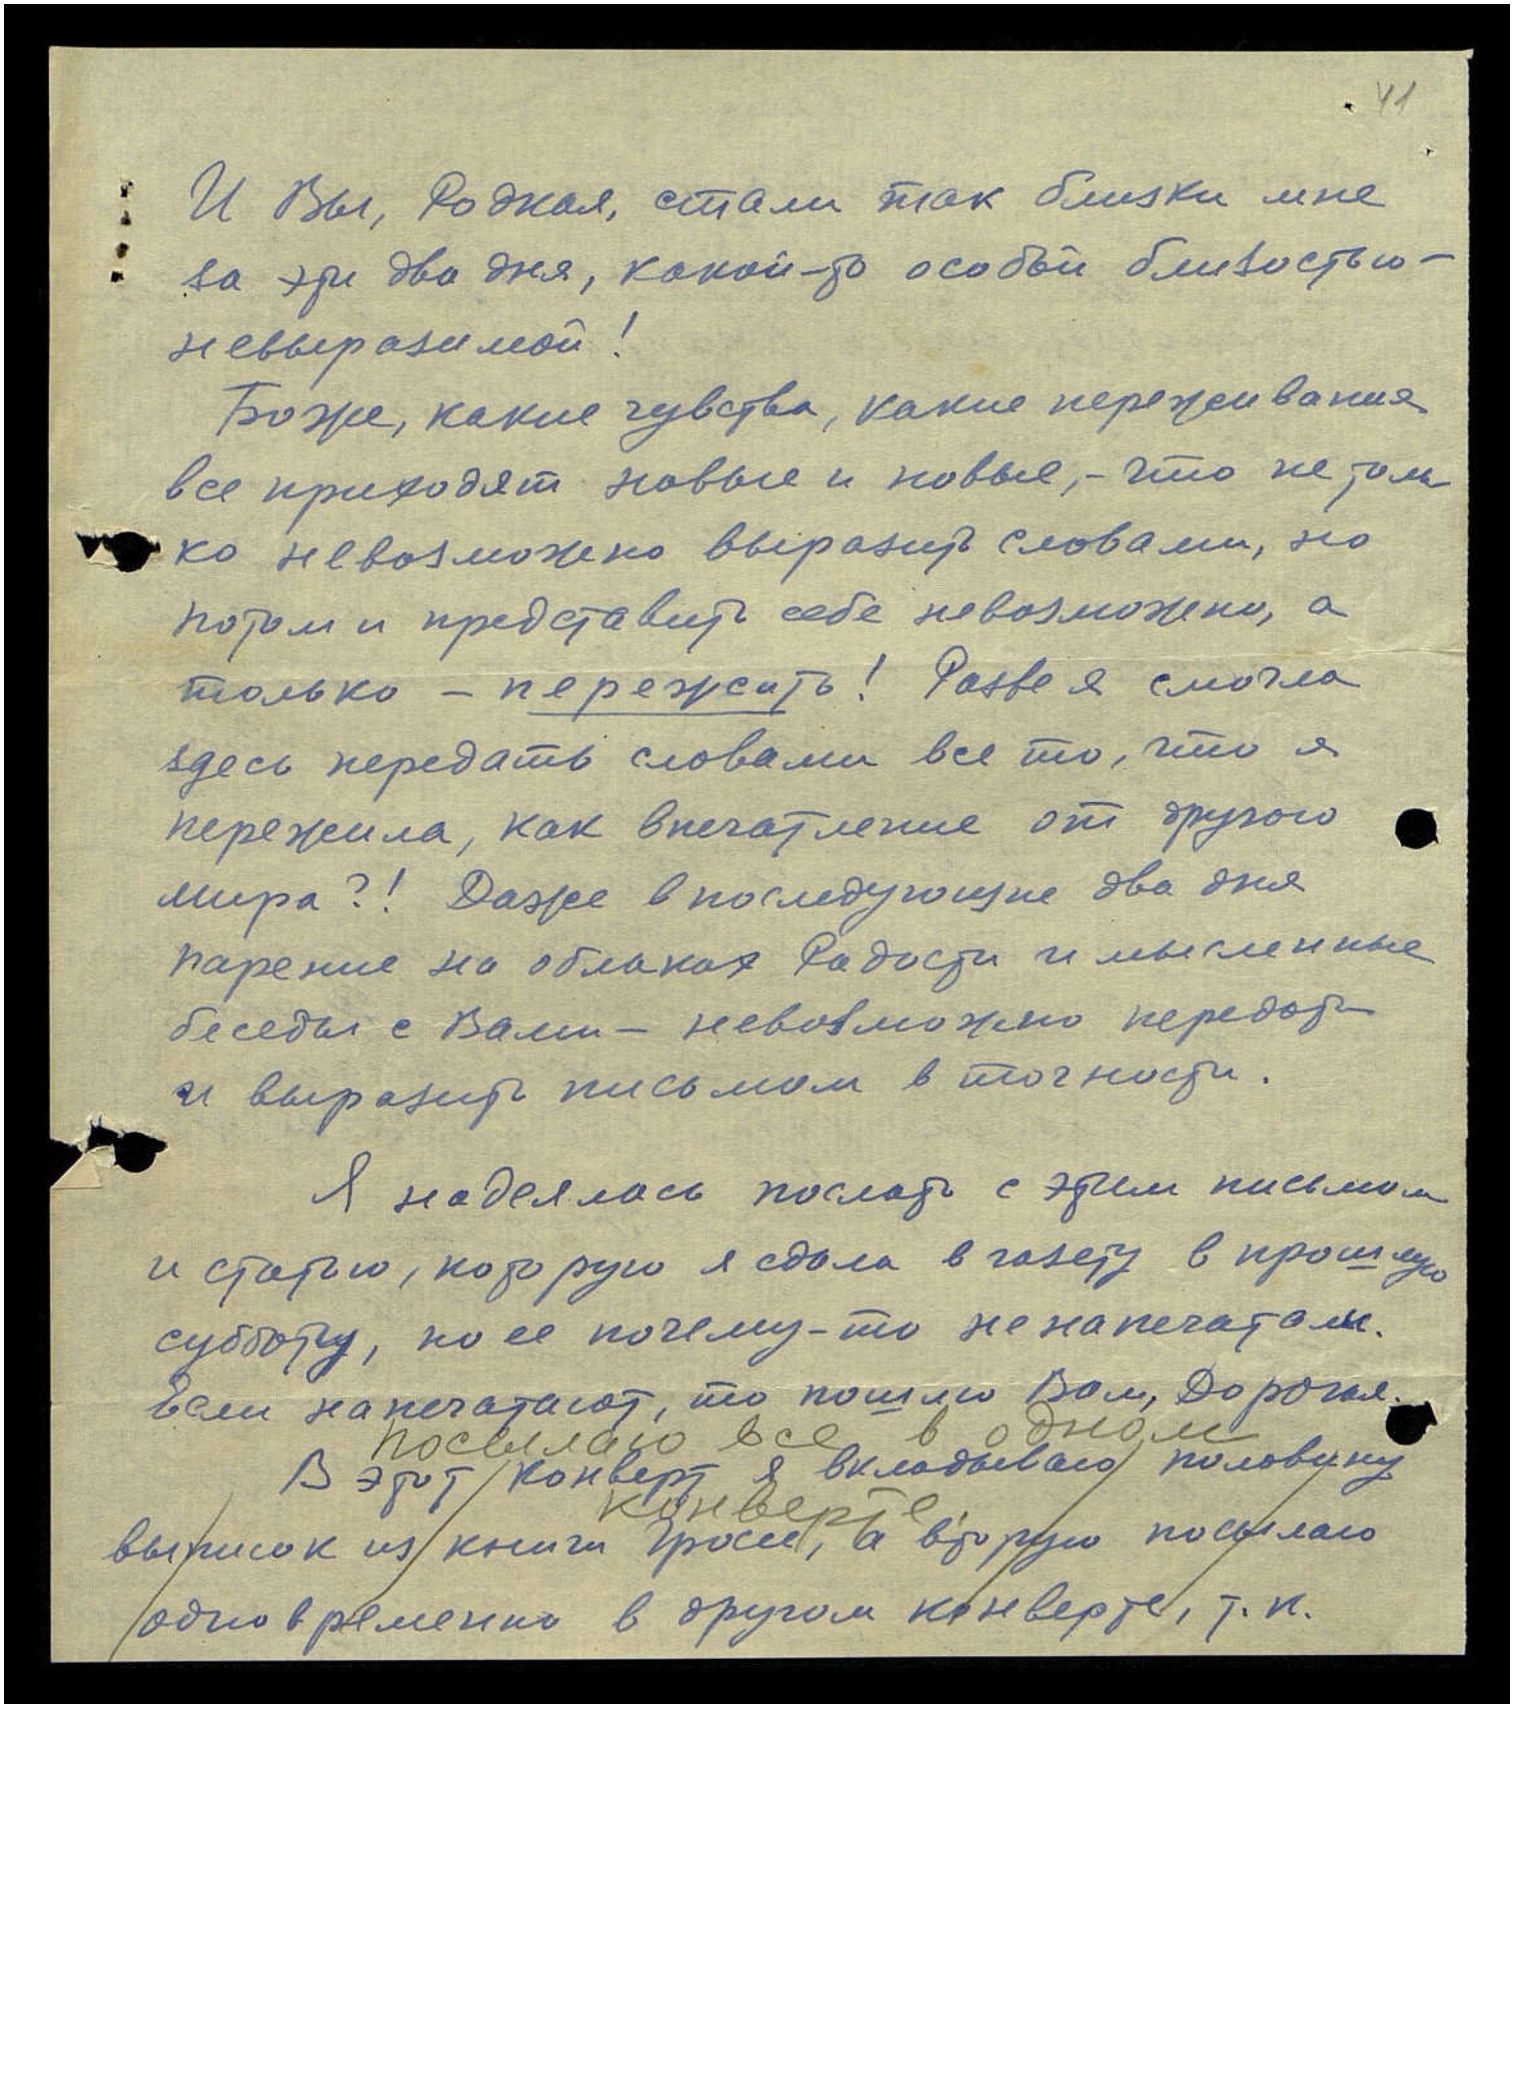 41
И Вы, Родная, стали так близки мне
за эти два дня, какой-то особой близостью –
невыразимой!
Боже, какие чувства, какие переживания
все приходят новые и новые, – что не толь
ко невозможно выразить словами, но
потом и представить себе невозможно, а
только – пережить! Разве я смогла
здесь передать словами все то, что я
пережила, как впечатление от другого
мира?! Даже в последующие два дня
парение на облаках Радости и мысленные
беседы с Вами – невозможно передать
и выразить письмом в точности.
Я надеялась послать с этим письмом
и статью, которую я сдала в газету в прошлую
субботу, но ее почему-то не напечатали.
Если напечатают, то пошлю Вам, Дорогая.
посылаю все в одном
В этот конверт я вкладываю половину
конверте.
выписок из книги Гросс, а вторую посылаю
одновременно в другом конверте, т.к.